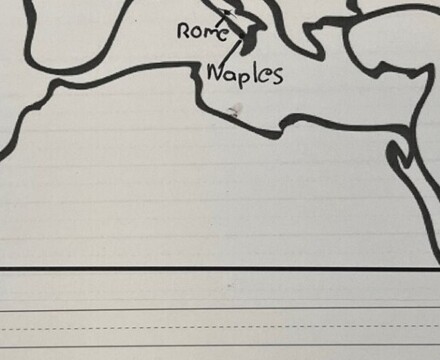 Rome
Naples